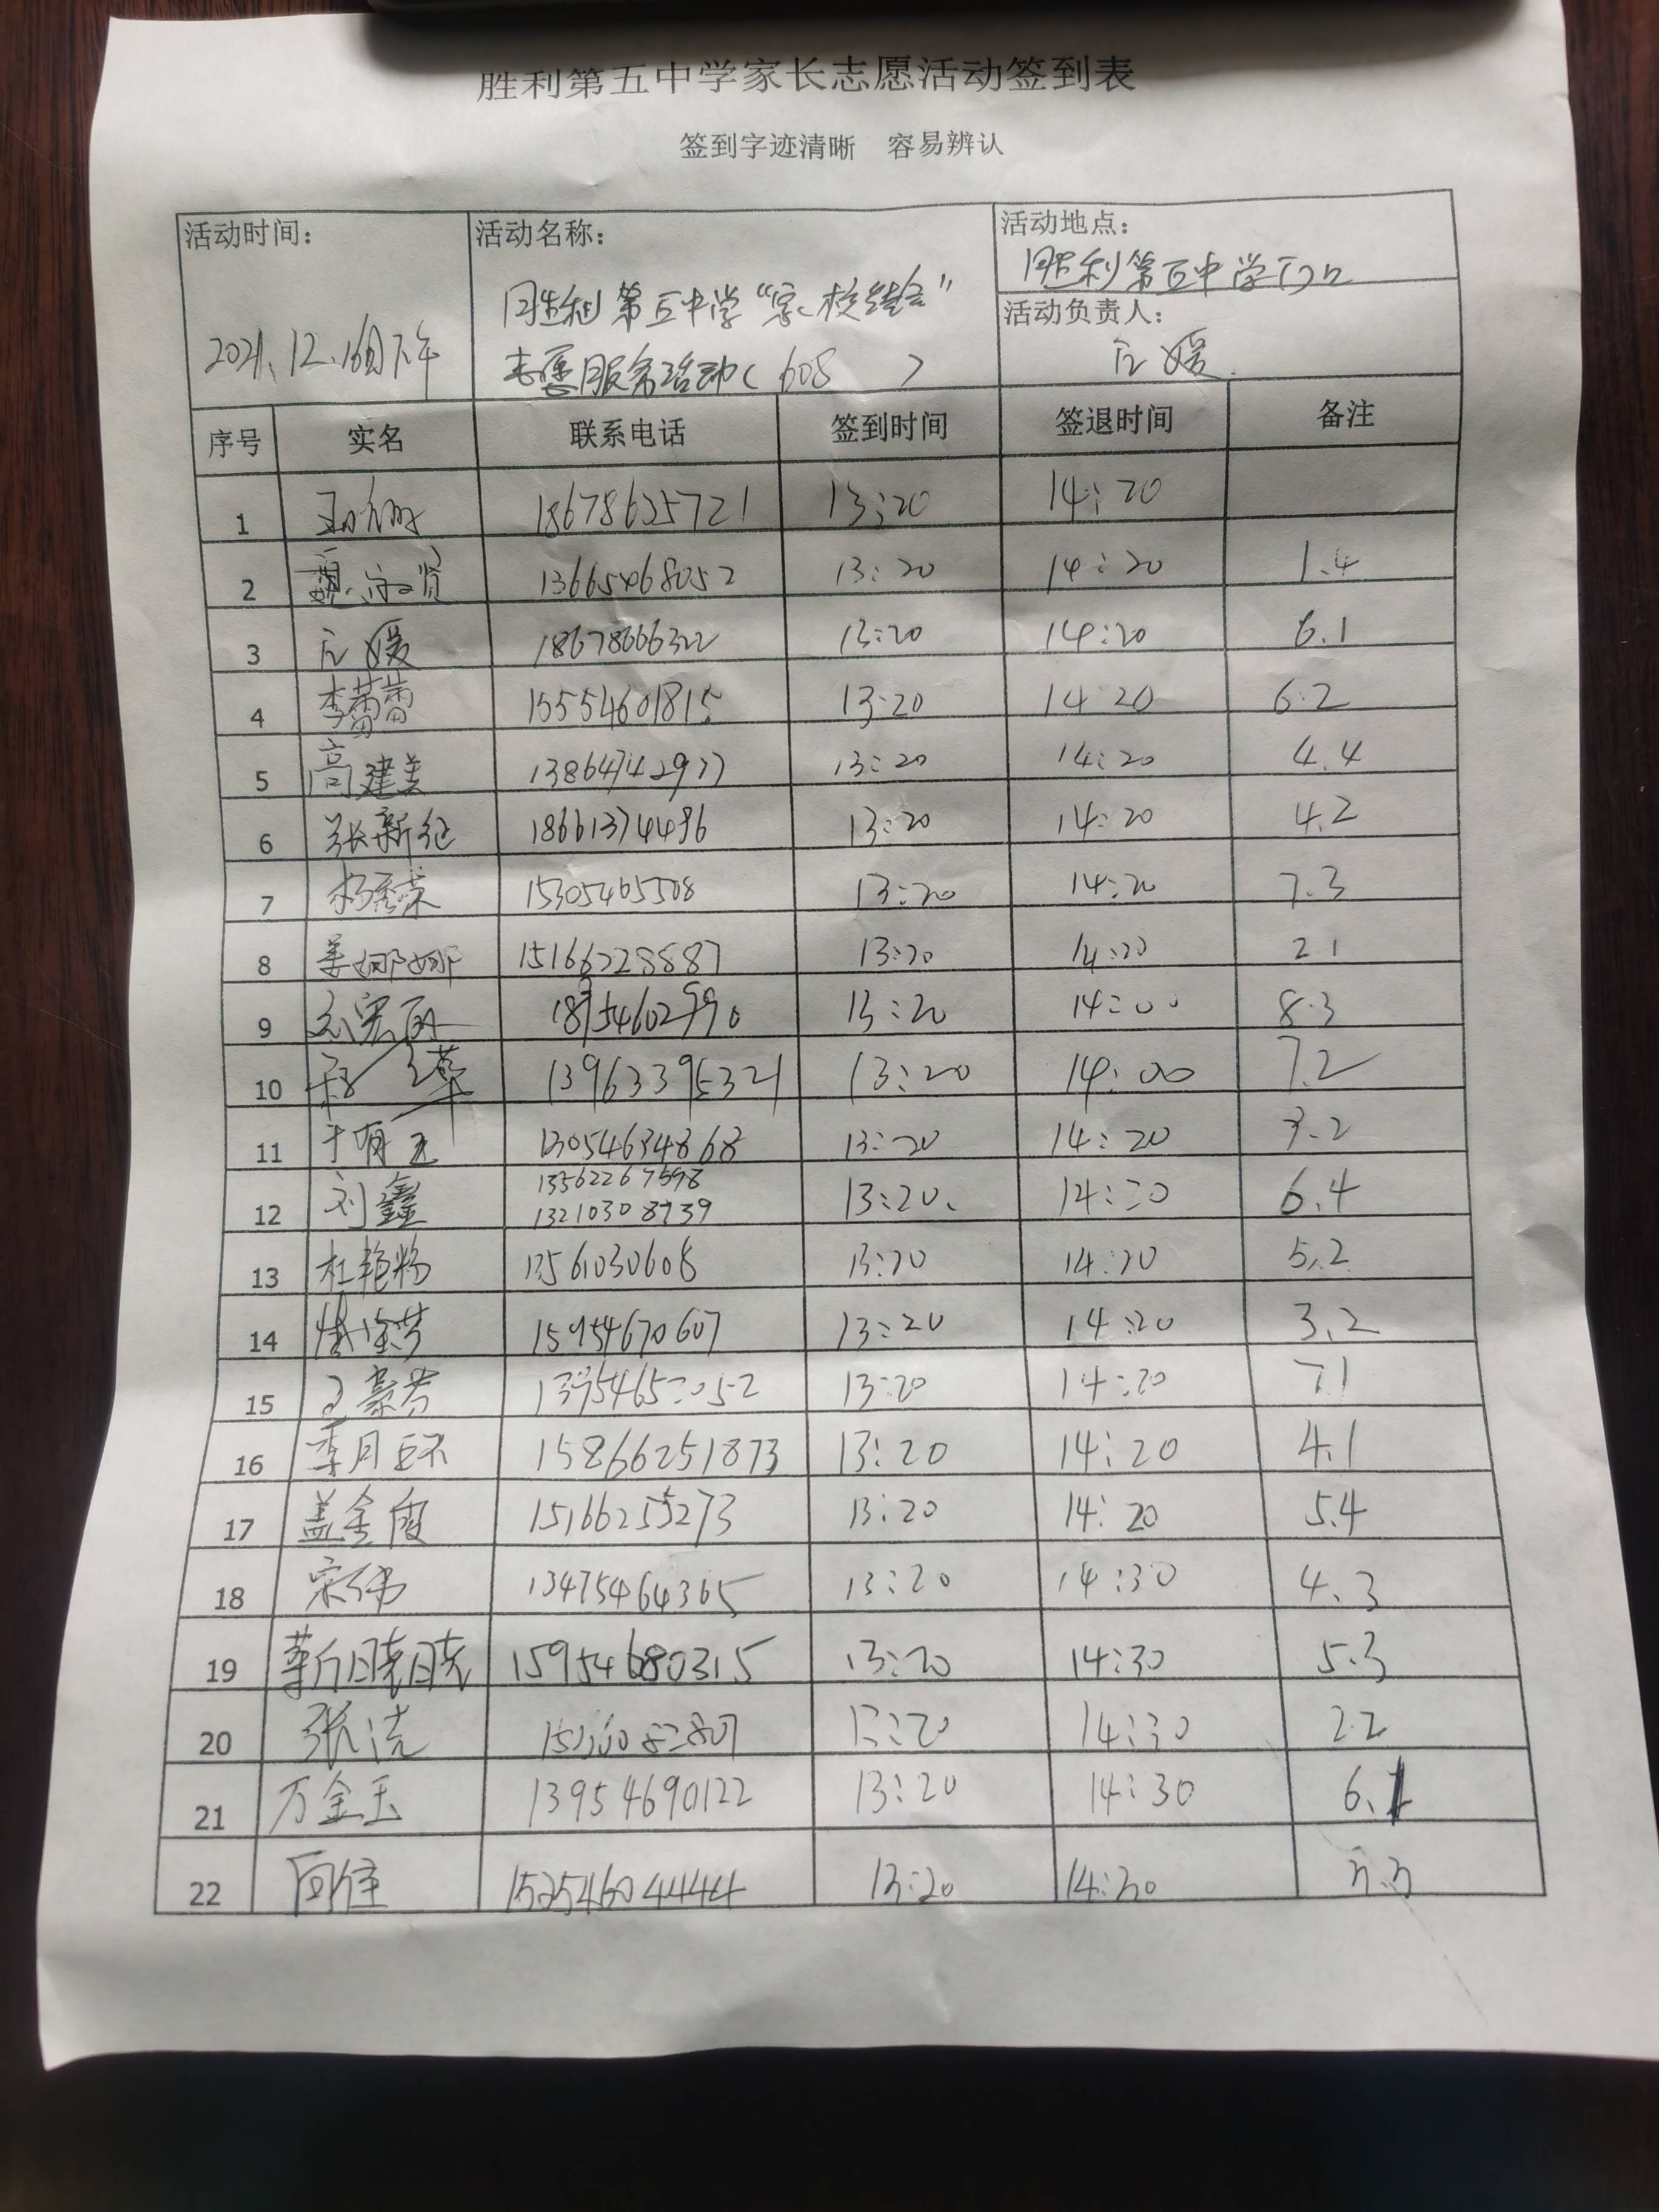 胜利第五中学家长志愿活动签到表
签到字迹清晰 容易辨认
活动时间： 活动名称： 活动地点：
胜利第五中学门口
胜利第五中学“家校结合” 活动负责人：
2021.12.16日下午 志愿服务活动（608 ） 应媛
序号 实名 联系电话 签到时间 签退时间 备注
1 18678625721 13:20 14:20
2 魏 贤 13665468052 13:20 14:20 1.4
3 应媛 18678666322 13:20 14:20 6.1
4 李蕾蕾 15554601815 13:20 14 20 6.2
5 高建美 13864742977 13:20 14:20 4.4
6 张新红 18661374496 13:20 14:20 4.2
7 杨秀荣 15305465508 13:20 14:20 7.3
8 姜娜娜 15166228887 13:20 14:20 2 1
9 18954602990 13:20 14:00 8.3
10 13963395321 13:20 14:00 7.2
11 13054634868 13:20 14:20 3.2
12 刘鑫 13562267598 13:20. 14:20 6.4
13210308939
13 杜艳粉 13561030608 13:20 14:20 5.2
14 15954670607 13:20 14:20 3.2
15 13:20 14:20 7.1
16 李月环 15866251873 13:20 14:20 4.1
17 盖金霞 15166255273 13:20 14:20 5.4
18 宋伟 13475464365 13:20 14:30 4.3
19 靳晓晓 15954680315 13:20 14:30 5.3
20 张洁 13:20 14:30 2.2
21 万金玉 13954690122 13:20 14:30 6.1
22 15254604444 13:20 14:30